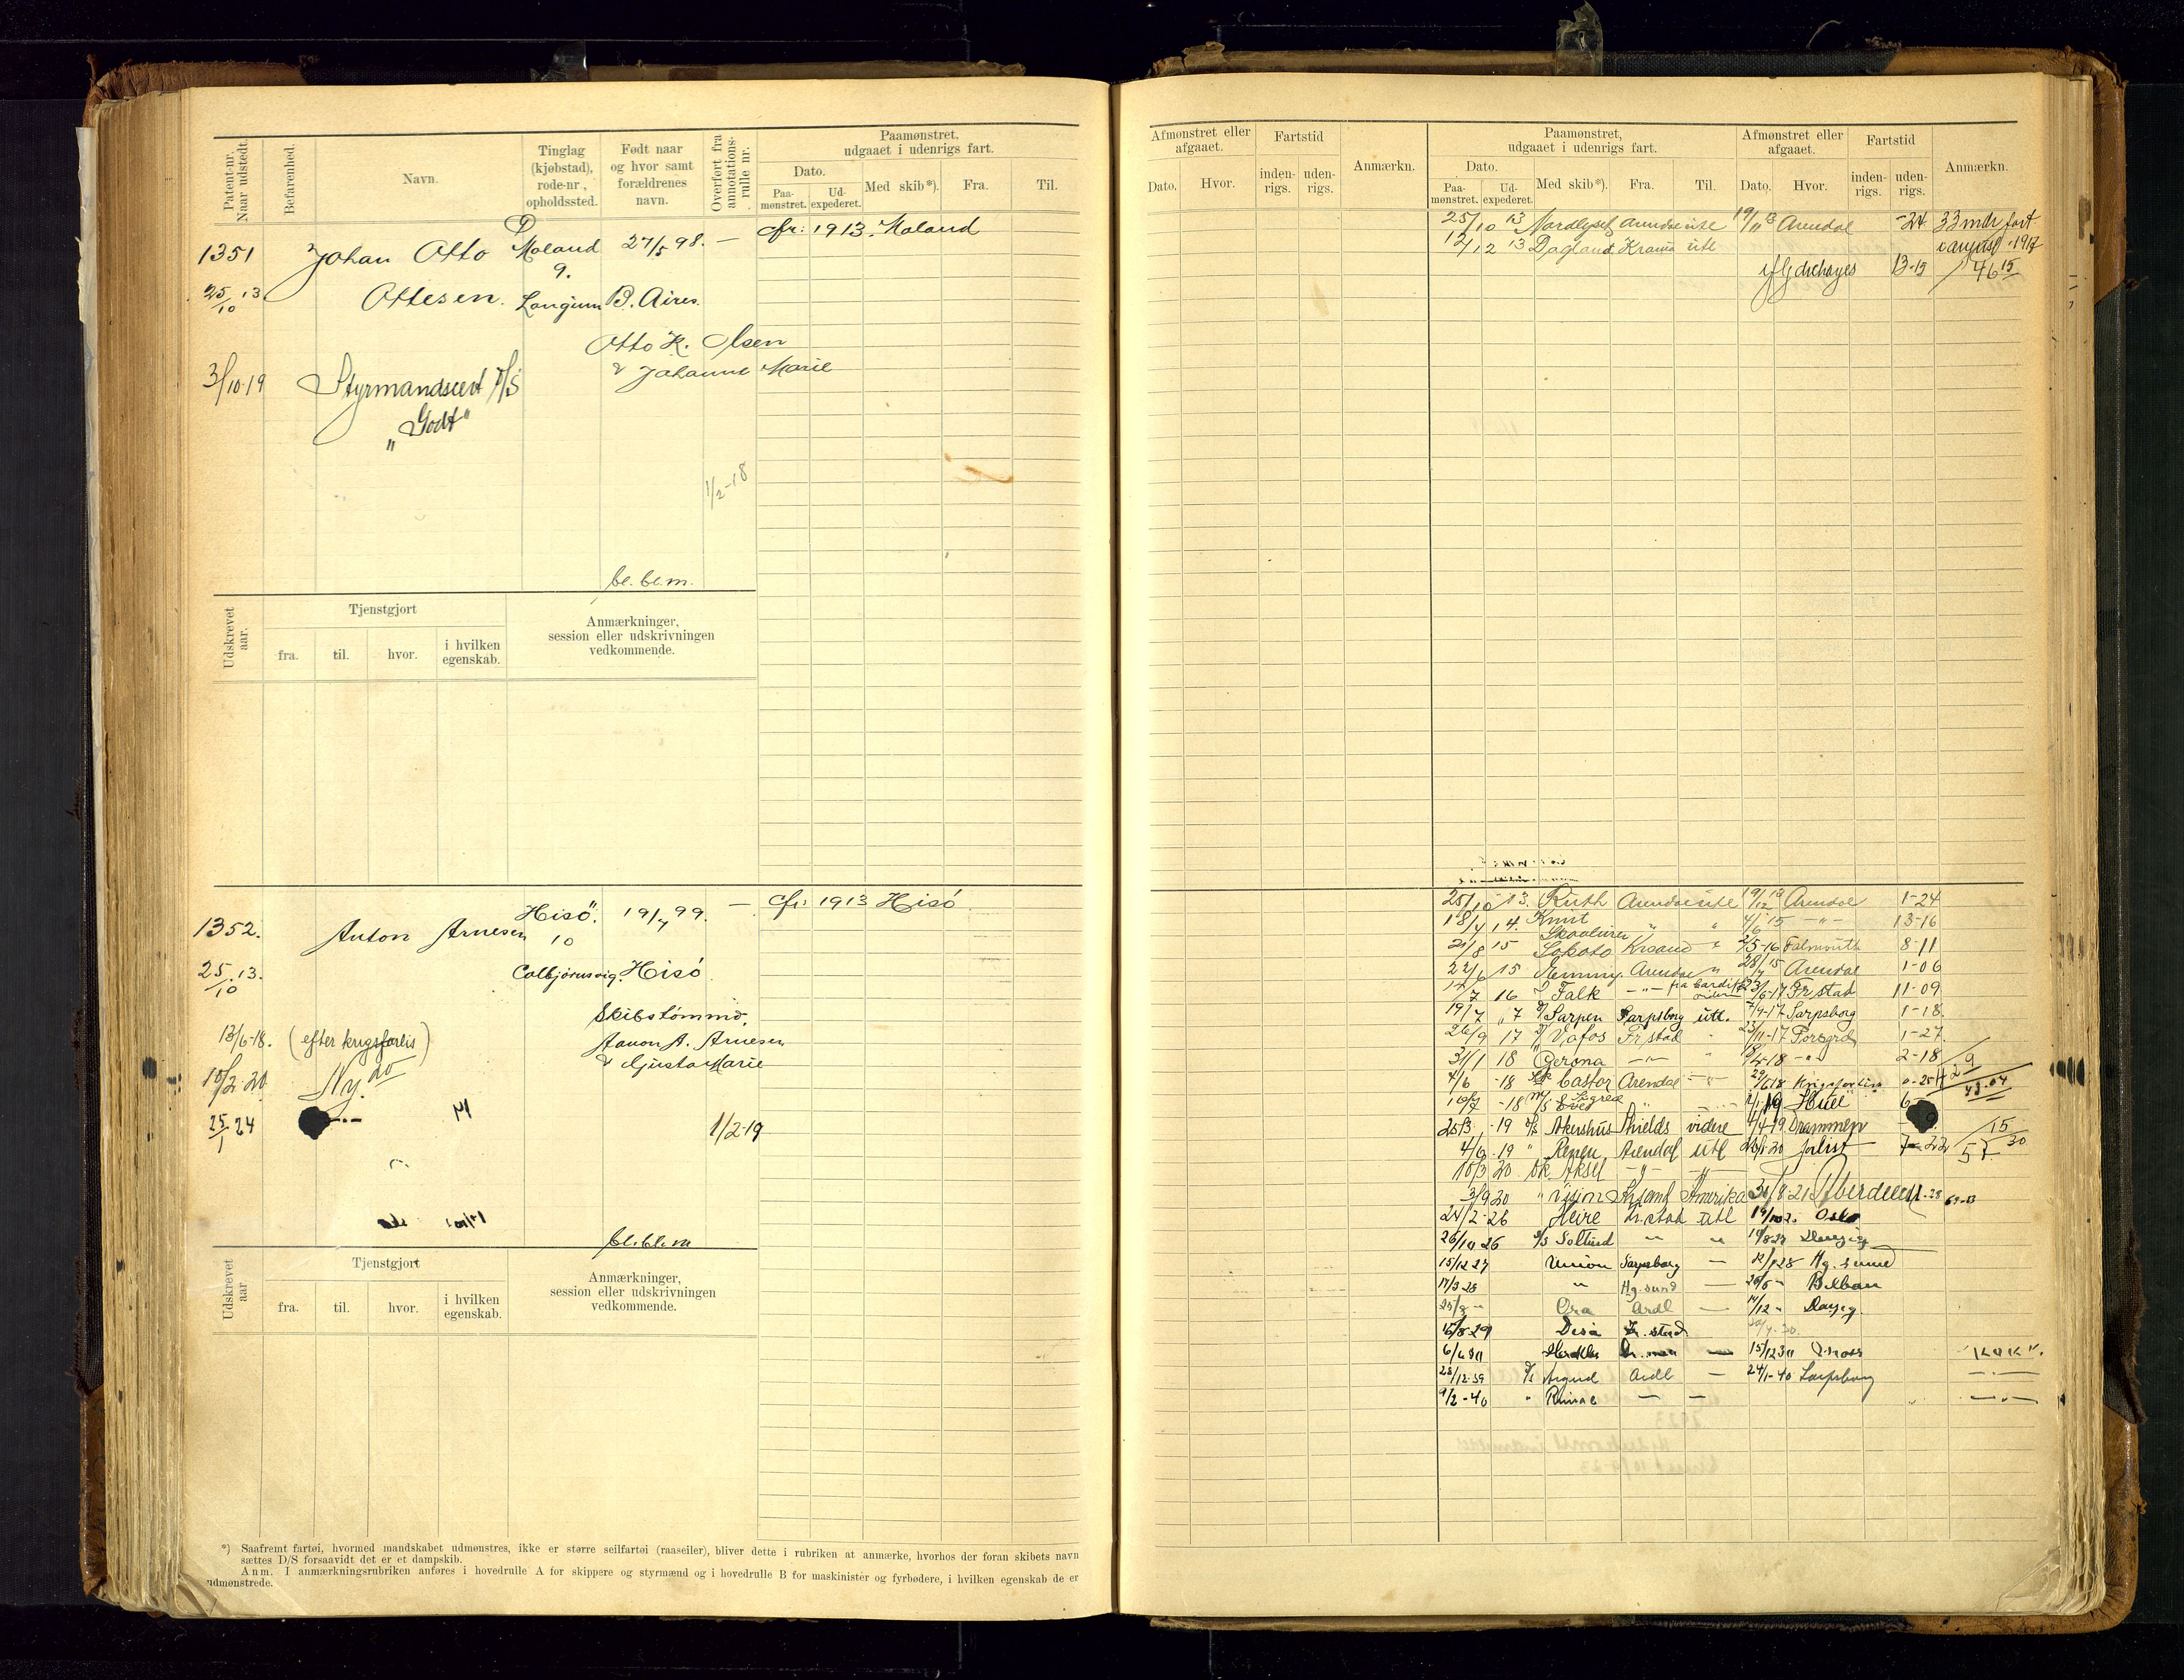 Patent-nr. Naar udstedt.
Befarenhed.
Navn.
Tinglag (kjøbstad), rode-nr, opholdssted.
Født naar og hvor samt forældrenes navn.
Overført fra annotations-rulle nr.
Paamønstret, udgaaet i udenrigs fart.
Dato.
Paa-mønstret. Ud-expederet.
Med skib*).
Fra.
Til.
1351 Johan Otto Moland 27/5 98. — cfr: 1913. Moland
9.
25/10 13 Ottesen. Langsum B. Aires.
Otto K. Olsen
& Johanne Marie
3/10-19 Styrmandscert D/S
"Godt"
1/2-18
be. be. m.
Udskrevet aar.
Tjenstgjort
fra. til. hvor. i hvilken egenskab.
Anmærkninger, session eller udskrivningen vedkommende.
1352. Anton Arnesen Hisö. 19/7 99. — cfr: 1913 Hisö
10
25/10 13. Colbjörnsvig. Hisö.
Skibstømmd.
Aanon A. Arnesen
& Gusta Marie
13/6-18. (efter krigsforlis)
10/2-20 Ny. do
25/1 24
1/2-19
be. be. m
Udskrevet aar
Tjenstgjort
fra. til. hvor. i hvilken egenskab.
Anmærkninger, session eller udskrivningen vedkommende.
*) Saafremt fartøi, hvormed mandskabet udmønstres, ikke er større seilfartøi (raaseiler), bliver dette i rubriken at anmærke, hvorhos der foran skibets navn
sættes D/S forsaavidt det er et dampskib.
Anm. I anmærkningsrubriken anføres i hovedrulle A for skippere og styrmænd og i hovedrulle B for maskinister og fyrbødere, i hvilken egenskab de er
udmønstrede.
Afmønstret eller afgaaet.
Dato. Hvor.
Fartstid
inden-rigs. uden-rigs.
Anmærkn.
Paamønstret, udgaaet i udenrigs fart.
Dato.
Paa-mønstret. Ud-expederet.
Med skib*). Fra. Til.
Afmønstret eller afgaaet.
Dato. Hvor.
Fartstid
inden-rigs. uden-rigs.
Anmærkn.
25/10 13 Nordlyset Arendal ute 19/11 13 Arendal -24 33 mdr fart
12/12 13 Dagland Krania utl august 1917
13-15 46 15
25/10 13. Ruth Arendal ute 19/12 13 Arendal 1-24
18/4 14. Knut " " 4/6 15 -"- 13-16
21/8 15 Sokoto Krsand " 2/5-16 Falmouth 8-11
22/6 15 Nemmy. Arendal " 28/7 15 Arendal 1-06
12/7 16 Falk -"- fra Cardiff 23/6-17 Frstad 11-09
19/7 17 D/ Sarpen Sarpsborg utl. 7/9-17 Sarpsborg 1-18
26/9 17 D/ Vafos Frstad " 23/11-17 Porsgrd 1-27
31/1 18 Gerona -"- " 18/4-18 -"- 2-18
4/6 -18 Sk Castor Arendal -"- 29/6 18 Krigsforlist 0-25
10/7 -18 M/S " 19 6
25/3 -19 D/S Akershus Shields videre 4/4-19 Drammen
4/6-19 " Arendal utl -20 forlist 7-22 57 30
10/3 20 Sk Aksel -"- -"-
3/9 20 " Amerika 30/8 21 Aberdeen
24/2-26 Heire Fr.stad utl Oslo
26/10 26 D/S Sollund " " Danzig
15/12 27 Union Sarpsborg — Hg. sund
17/3 28 " Hg. sund — 26/5 " Bilbao
Ora Ardl — 14/12 "
15/8-29 Desa Fr. stad
6/6 30 — 15/12 30 Moss "KoK".
28/12-39 D/S Sigurd Ardl — 24/1-40 Sarpsborg —"—
9/2-40 " — — —"—